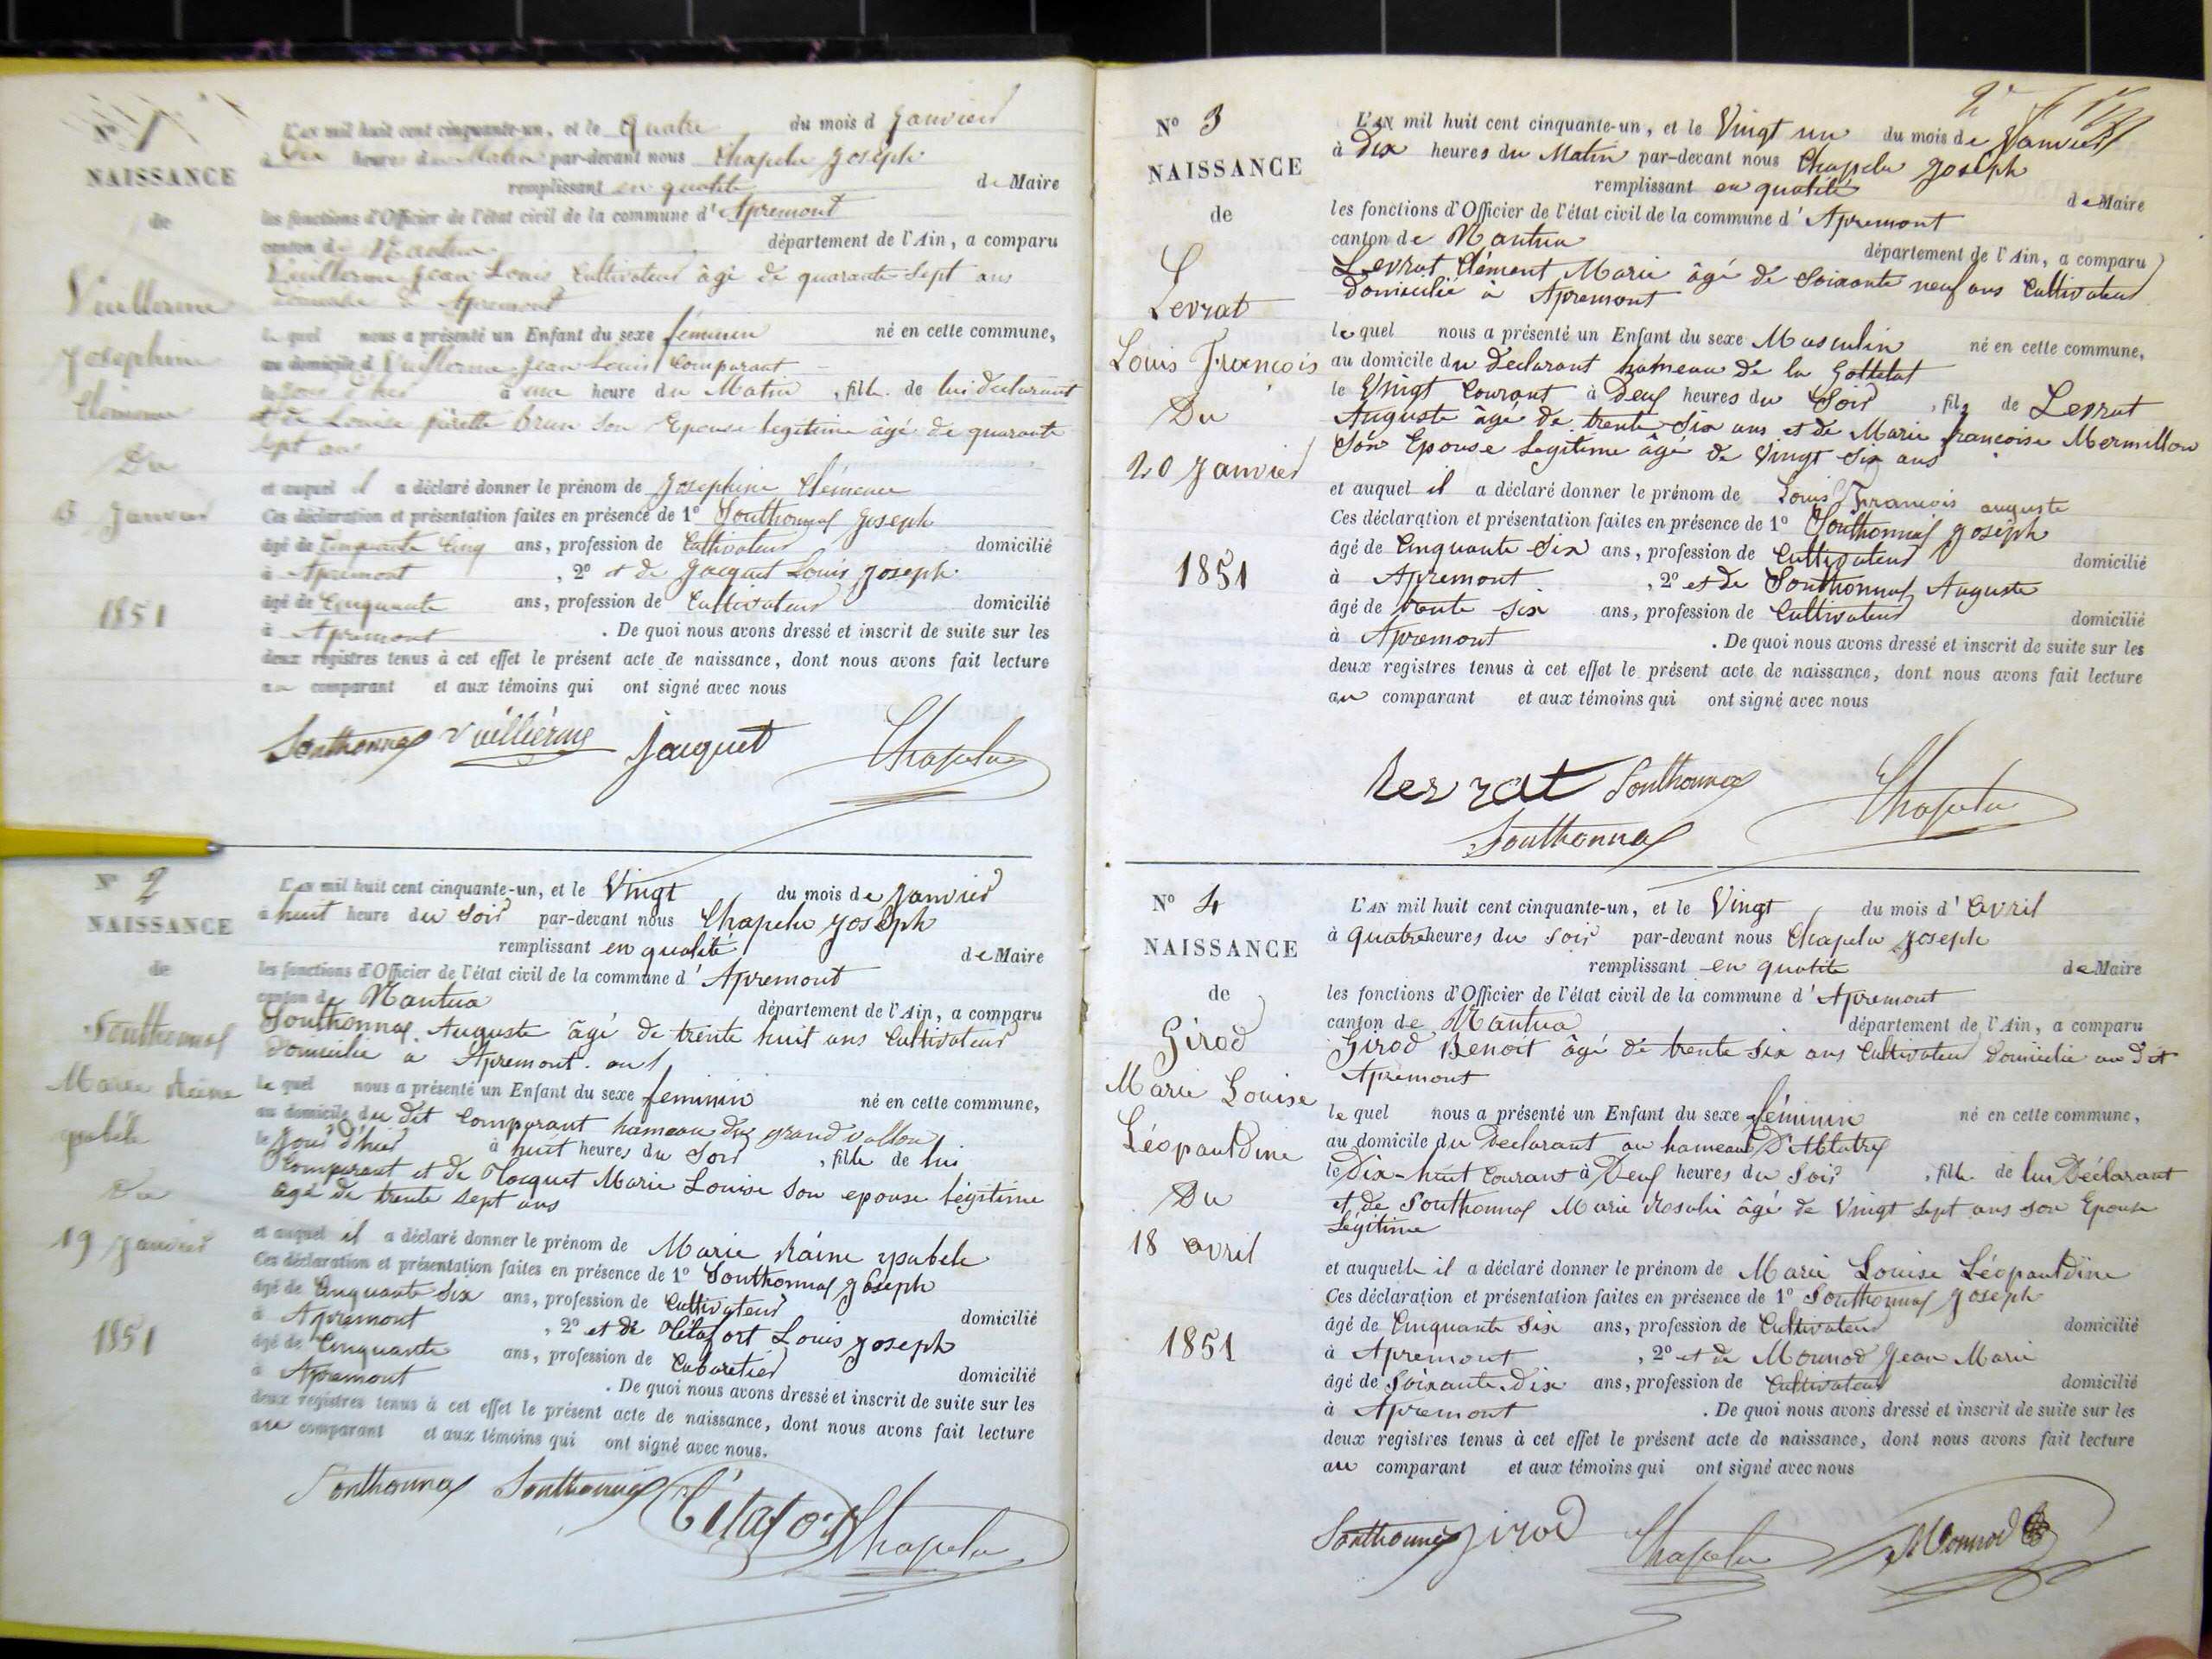 N° 1
NAISSANCE
de
Vuillerme
Josephine
Clémence
Du
Janvier
1851
L'AN mil huit cent cinquante-un, et le quatre du mois d Janvier
à heures du Matin par-devant nous Chapelu Joseph
remplissant en qualité de Maire
les fonctions d'Officier de l'état civil de la commune d'Apremont
canton de Nantua département de l'Ain, a comparu
Vuillerme Jean Louis Cultivateur âgé de quarante sept ans
Domicilié à Apremont
le quel nous a présenté un Enfant du sexe féminin né en cette commune,
au domicile d Vuillerme Jean Louis Comparant
le à une heure du Matin , fille de lui declarant
et de Louise pierette Brun Son Epouse legitime âgé de quarante
sept ans
et auquel il a déclaré donner le prénom de Josephine Clémence
Ces déclaration et présentation faites en présence de 1° Southonnax Joseph
âgé de Cinquante Cinq ans, profession de Cultivateur domicilié
à Apremont , 2° et de Jacquet Louis Joseph
âgé de Cinquante ans, profession de Cultivateur domicilié
à Apremont . De quoi nous avons dressé et inscrit de suite sur les
deux registres tenus à cet effet le présent acte de naissance, dont nous avons fait lecture
au comparant et aux témoins qui ont signé avec nous
Southonnax Vuillierme Jacquet Chapelu
N° 2
NAISSANCE
de
Southonnax
Marie Reine
ysabele
Du
19 Janvier
1851
L'AN mil huit cent cinquante-un, et le Vingt du mois de Janvier
à huit heure du Soir par-devant nous Chapelu Joseph
remplissant en qualité de Maire
les fonctions d'Officier de l'état civil de la commune d'Apremont
canton de Nantua département de l'Ain, a comparu
Southonnax Auguste âgé de trente huit ans Cultivateur
Domicilie à Apremont
le quel nous a présenté un Enfant du sexe feminin né en cette commune,
au domicile du dit Comparant hameau du grand vallon
le Jour d'hier à huit heures du Soir , fille de lui
Comparant et de Jacquet Marie Louise Son epouse légitime
agé de trente sept ans
et auquel il a déclaré donner le prénom de Marie Raine ysabele
Ces déclaration et présentation faites en présence de 1° Southonnax Joseph
âgé de Cinquante Six ans, profession de Cultivateur
à Apremont , 2° et de Létafort Louis Joseph domicilié
âgé de Cinquante ans, profession de Cabaretier
à Apremont domicilié
. De quoi nous avons dressé et inscrit de suite sur les
deux registres tenus à cet effet le présent acte de naissance, dont nous avons fait lecture
au comparant et aux témoins qui ont signé avec nous.
Southonnax Southonnax Létafort Chapelu
N° 3
NAISSANCE
de
Levrat
Louis François
Du
20 Janvier
1851
L'AN mil huit cent cinquante-un, et le Vingt un du mois de Janvier
à Dix heures du Matin par-devant nous Chapelu Joseph
remplissant en qualité de Maire
les fonctions d'Officier de l'état civil de la commune d'Apremont
canton de Nantua département de l'Ain, a comparu
Levrat Clément Marie âgé de Soixante neuf ans Cultivateur
Domicilié à Apremont
le quel nous a présenté un Enfant du sexe Masculin né en cette commune,
au domicile du declarant hameau de la Gottetat
le Vingt Courant à Deux heures du Soir , fils de Levrat
Auguste âgé de trente Six ans et de Marie françoise Mermillon
Son Epouse Legitime âgé de Vingt Six ans
et auquel il a déclaré donner le prénom de Louis François auguste
Ces déclaration et présentation faites en présence de 1° Southonnax Joseph
âgé de Cinquante Six ans, profession de Cultivateur domicilié
à Apremont , 2° et de Southonnax Auguste
âgé de trente six ans, profession de Cultivateur domicilié
à Apremont . De quoi nous avons dressé et inscrit de suite sur les
deux registres tenus à cet effet le présent acte de naissance, dont nous avons fait lecture
au comparant et aux témoins qui ont signé avec nous
Levrat Southonnax Chapelu
Southonnax
N° 4
NAISSANCE
de
Girod
Marie Louise
Léopauldine
Du
18 avril
1851
L'AN mil huit cent cinquante-un, et le Vingt du mois d'avril
à quatre heures du soir par-devant nous Chapelu Joseph
remplissant en qualité de Maire
les fonctions d'Officier de l'état civil de la commune d'Apremont
canton de Nantua département de l'Ain, a comparu
Girod Benoit âgé de trente six ans Cultivateur Domicilie au dit
Apremont
le quel nous a présenté un Enfant du sexe féminin né en cette commune,
au domicile du Declarant au hameau
le Dix-huit Courant à Deux heures du Soir , fille de lui Déclarant
et de Southonnax Marie Rosalie âgé de Vingt Sept ans son Epouse
Légitime
et auquelle il a déclaré donner le prénom de Marie Louise Léopauldine
Ces déclaration et présentation faites en présence de 1° Southonnax Joseph
âgé de Cinquante Six ans, profession de Cultivateur domicilié
à Apremont , 2° et de Mounod Jean Marie
âgé de Soixante-Dix ans, profession de Cultivateur domicilié
à Apremont . De quoi nous avons dressé et inscrit de suite sur les
deux registres tenus à cet effet le présent acte de naissance, dont nous avons fait lecture
au comparant et aux témoins qui ont signé avec nous
Southonnax girod Chapelu Mounod